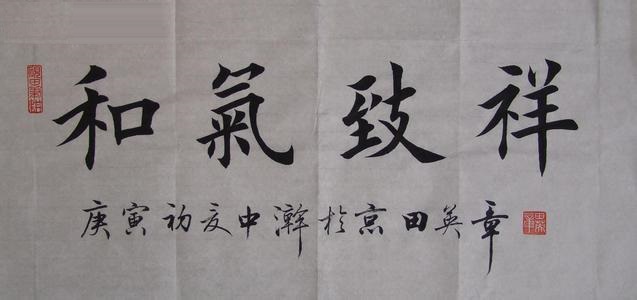 和氣致祥
庚寅初夏中澣於京田英章